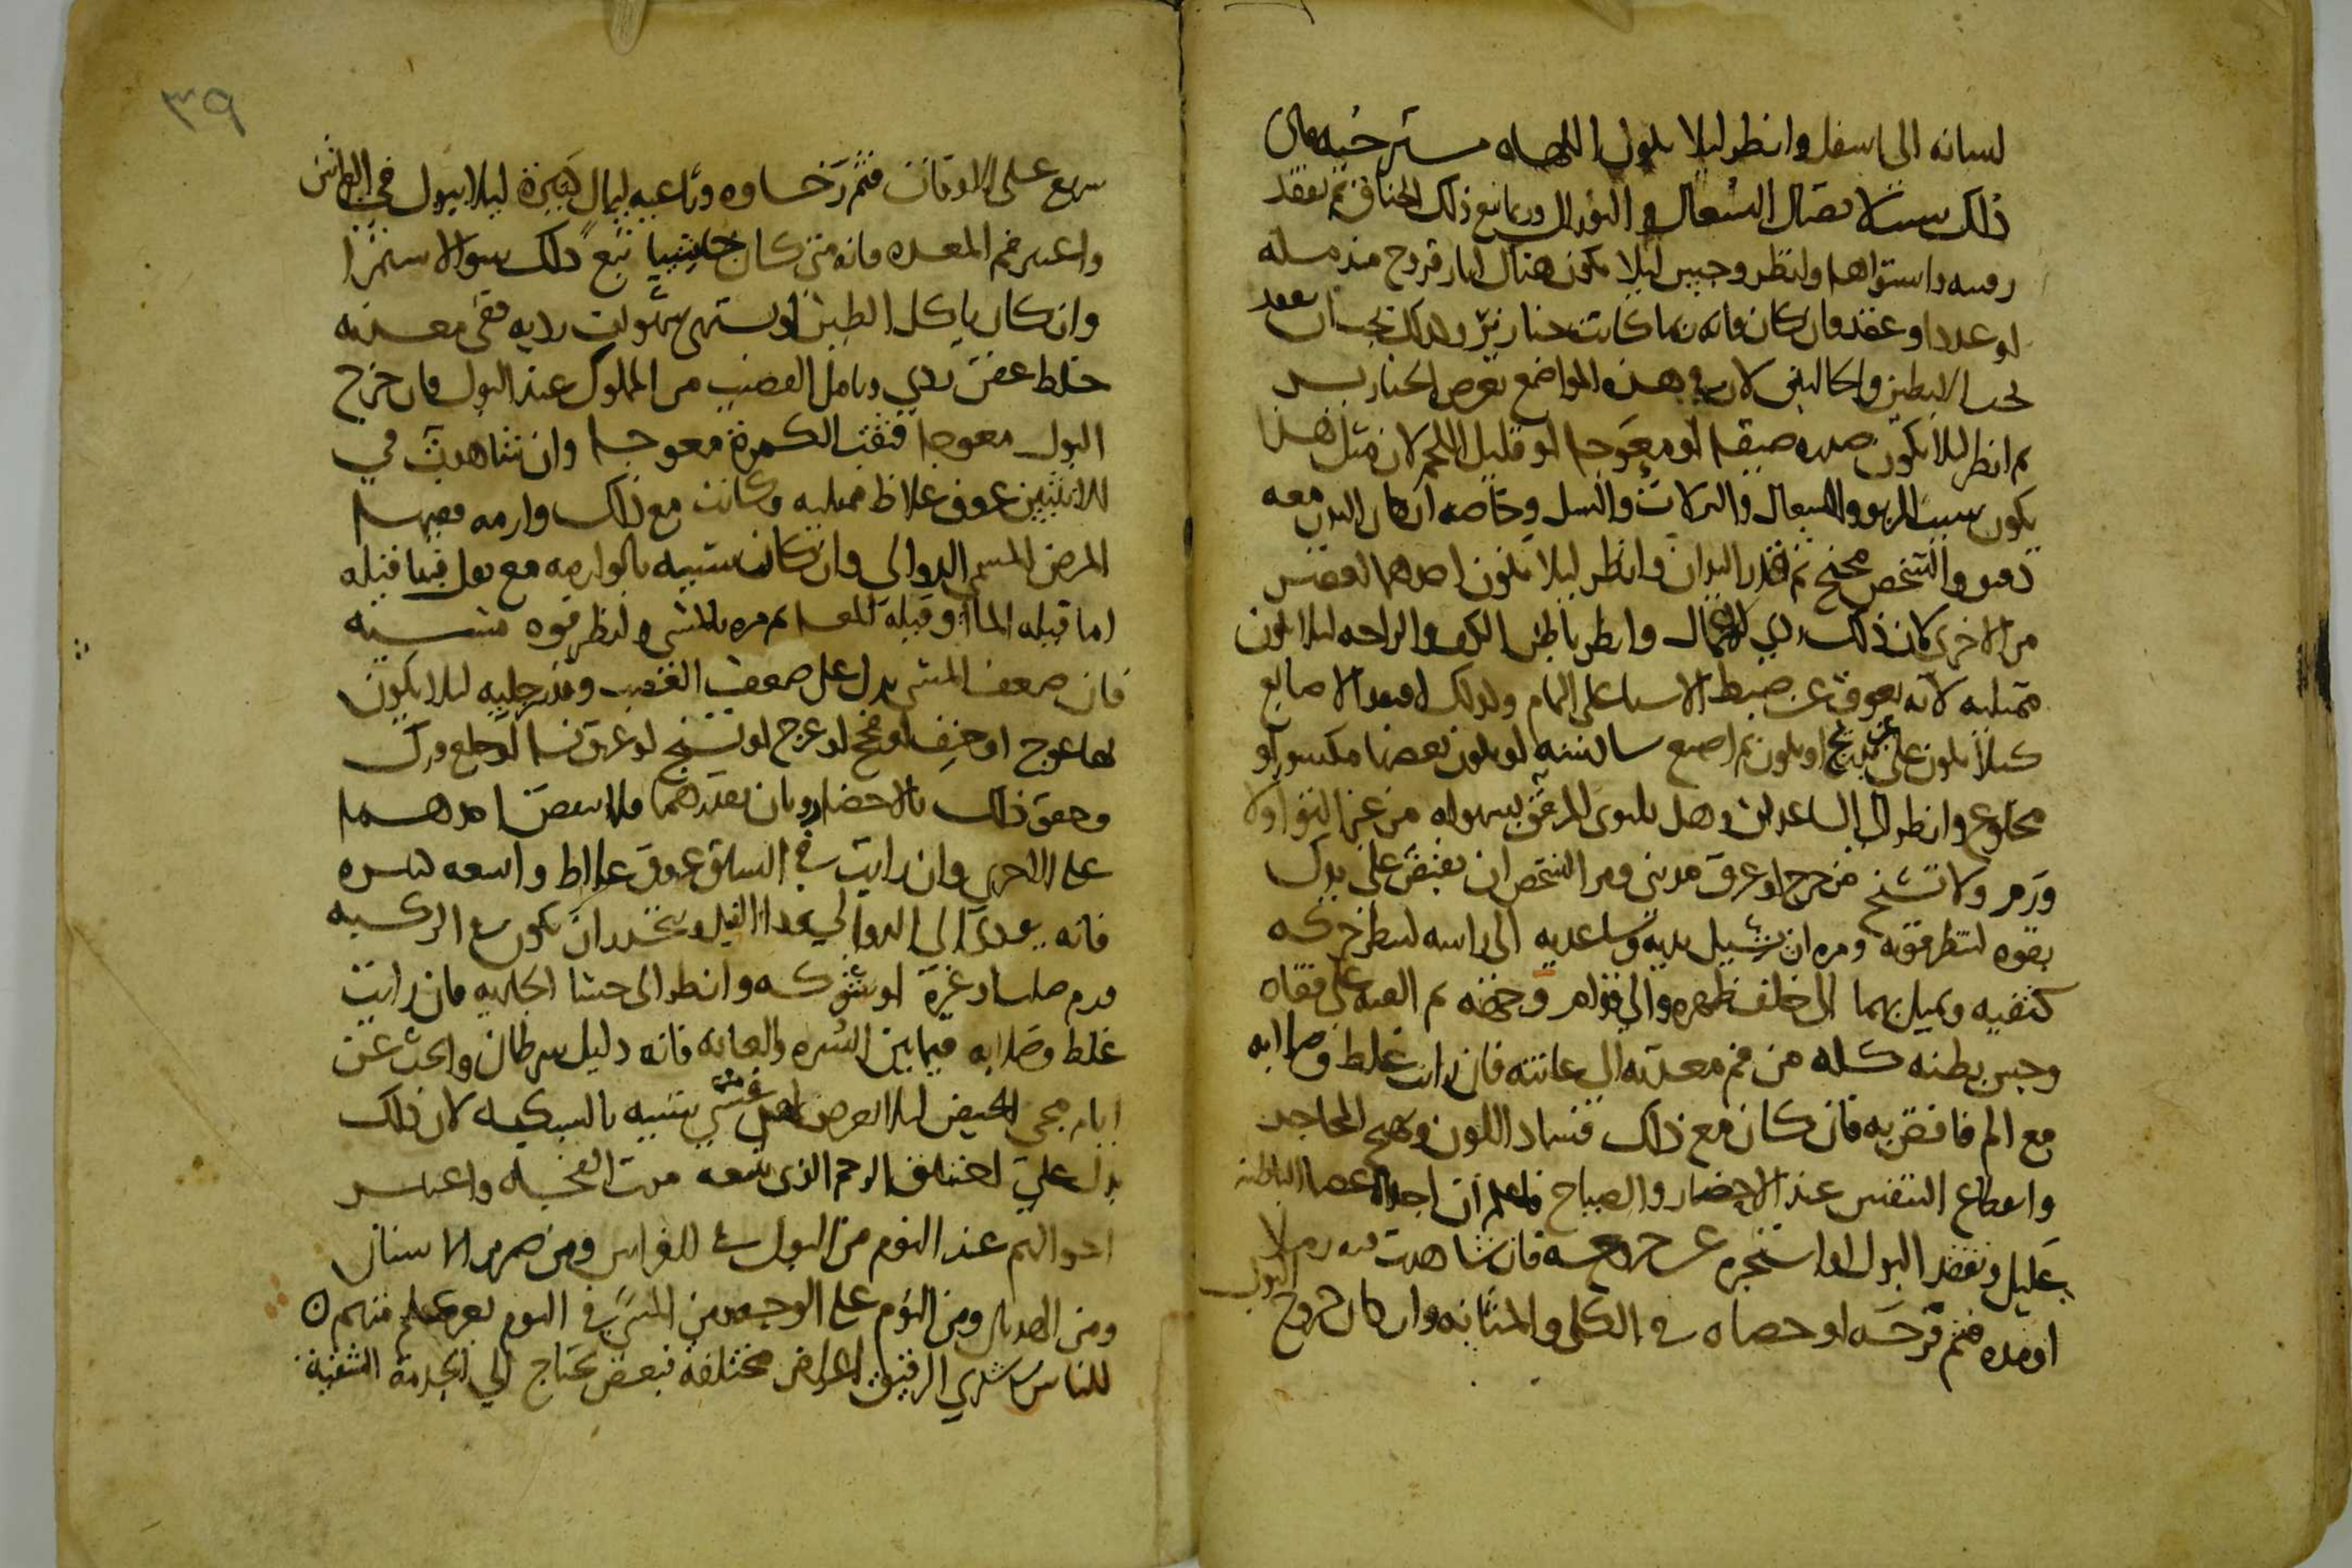 لسانه الى اسفل وانظر ليلا يكون اللهاه مسترخيه فان
ذلك سبب لاتصال السعال و النوازل وربما تبع ذلك الخناق ثم تفقد
رقبته واستواها وانظر وجس ليلا يكون هناك اثار قروح مندمله
او غددا او عقد فان كان فانه ربما كانت خنازير وكذلك يجب ان تفقد
تحت الابطين والحالبين لان في هذه المواضع تعرض الخنازير
ثم انظر ليلا يكون صدره ضيقا او معوجا او قليل اللحم لان مثل هذا
يكون سبب للربو والسعال والنزلات والسل وخاصه ان كان البدن معه
والشخص مجنح ثم تفقد اليدان وانظر ليلا تكون احدهما اقصر
من الاخرى لان ذلك ردي للاعمال وانظر باطن الكف والراحه ليلا تكون
ممتليه لانه يعوق عن ضبط الاشيا على التمام وكذلك افتقد الاصابع
كيلا تكون على تشنج او يكون ثم اصبع او يكون بعضها مكسور او
مخلوع وانظر الى الساعدين وهل يلتوى المرفق بسهوله من غير التوا ولا
ورم ولا تشنج من جرح او عرق مديني ومر الشخص ان يقبض على يدك
بقوه لتنظر قوته ومره ان يشيل يديه وساعديه الى راسه لتنظر حركه
كتفيه ويميل بهما الى خلف ظهره والى قدام ثم القه على قفاه
وجس بطنه كله من فم معدته الى عانته فان رايت غلظ وصلابه
مع الم فاقض به فان كان مع ذلك فساد اللون وتهيج المحاجر
وانقطاع التنفس عند الاحضار والصياح فاعلم ان احد الاعضا الباطنه
عليل وتفقد البول فان شاهدت فيه رملا
او مده فثم قرحه او حصاه في الكلى والمثانه وان كان خروج البول
٣٩
سريع على الاوقات فثم رخاوه وراعيه ليال كثيرة ليلا يبول في الفراش
واعتبر فم المعده فانه متى كان تبع ذلك سو الاستمرا
وان كان ياكل الطين او يشتهي شهوات رديه ففي معدته
خلط عفن ردي وتامل القضيب من المملوك عند البول فان خرج
البول معوجا فثقب الكمرة معوجا وان شاهدت في
الانثيين عروق غلاظ ممتليه وكانت مع ذلك وارمه ففيها
المرض المسمى الدوالي وان كانت شبيه بالوارمه مع ثقل فيها قيله
اما قيله الما او قيله المعا ثم مره بالمشي وانظر قوه مشيه
فان ضعف المشي يدل على ضعف العصب وتفقد رجليه ليلا يكون
بها عوج او حنف او فحج او عرج او تشنج او عرق نسا او خلع ورك
وحقق ذلك بالاحضار وبان تمدهما فلا تنقص احدهما
على الاخرى وان رايت في الساق عروق غلاظ واسعه كثيره
فانه يودى الى الدوالي وداء الفيل واحذر ان يكون في الركبه
ورم صلب وانظر الى حشا الجاريه فان رايت
غلظ وصلابه فيما بين السره والعانه فانه دليل سرطان وابحث عن
ايام مجي الحيض ليلا يعرض لهن غشي شبيه بالسكته لان ذلك
يدل على اختناق الرحم الذي يتبعه موت الفجاه واعتبر
احوالهم عند النوم من البول في الفراش ومن صرير الاسنان
ومن الهديان ومن النوم على الوجه ومن المشي في النوم
للناس في شري الرقيق اغراض مختلفه فبعض يحتاج الى الخدمة